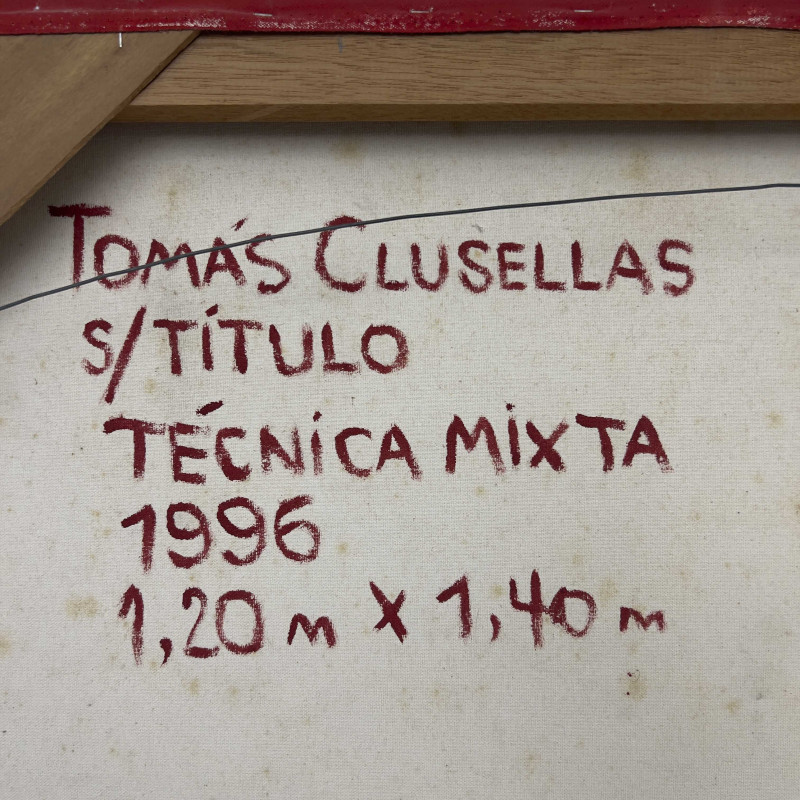 TOMÁS CLUSELLAS
S/TÍTULO
TÉCNICA MIXTA
1996
1,20 m X 1,40 m